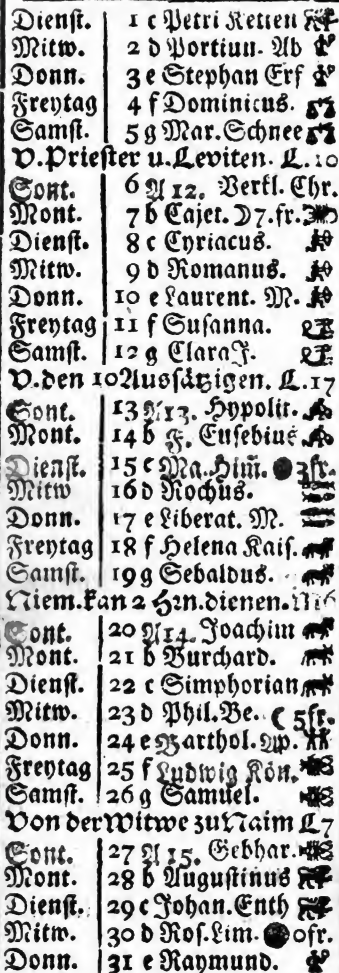 Dienst. 1 c Petri Ketten
Mitw. 2 d Portiun. Ab
Donn. 3 e Stephan Erf
Freytag 4 f Dominicus.
Samst. 5 g Mar. Schnee
V. Priester u. Leviten. L. 10
Sont. 6 A 12. Verkl. Chr.
Mont. 7 b Cajet. ☽ 7. fr.
Dienst. 8 c Cyriacus.
Mitw. 9 d Romanus.
Donn. 10 e Laurent. M.
Freytag 11 f Susanna.
Samst. 12 g Clara J.
V. den 10 Aussätzigen. L. 17
Sont. 13 A 13. Hypolit.
Mont. 14 b F. Eusebius
Dienst. 15 c Ma. Him̃. 3fr.
Mitw 16 d Rochus.
Donn. 17 e Liberat. M.
Freytag 18 f Helena Kais.
Samst. 19 g Sebaldus.
Niem. kan 2 Hrn. dienen. M6
Sont. 20 A 14. Joachim
Mont. 21 b Burchard.
Dienst. 22 c Simphorian
Mitw. 23 d Phil. Be. ☾ 5fr.
Donn. 24 e Barthol. Ap.
Freytag 25 f Ludwig Kön.
Samst. 26 g Samuel.
Von der Witwe zu Naim L7
Sont. 27 A 15. Gebhar.
Mont. 28 b Augustinus
Dienst. 29 c Johan. Enth
Mitw. 30 d Ros. Lim. 0fr.
Donn. 31 e Raymund.